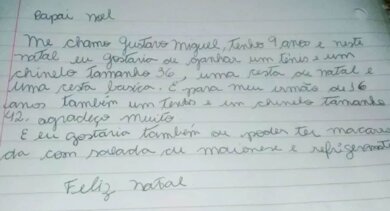 Papai noel
Me chamo Gustavo Miguel, tenho 9 anos e neste
natal eu gostaria de ganhar um tênis e um
chinelo tamanho 36, uma cesta de natal e
uma cesta basica. E para meu irmão de 16
anos também um tenis e um chinelo tamanho
42. agradeço muito.
E eu gostaria também de poder ter macarro
da com salada de maionese e refrigerante
Feliz natal